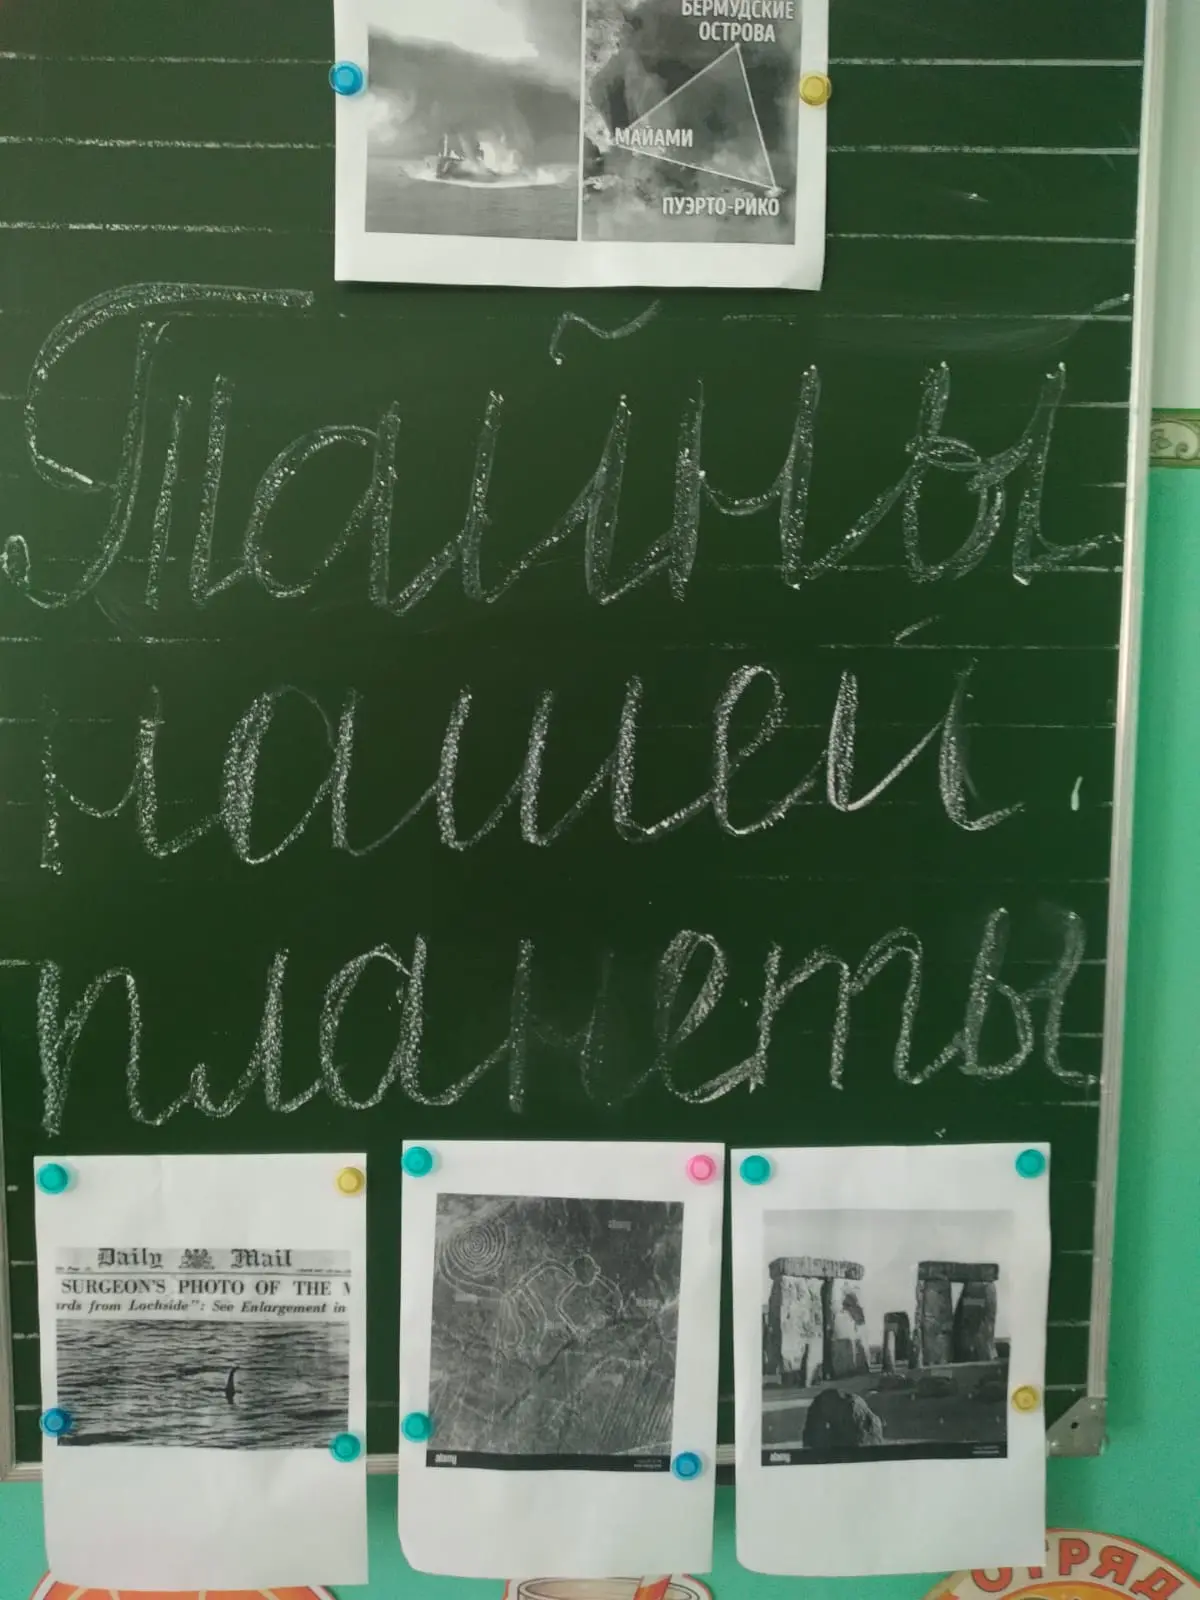 БЕРМУДСКИЕ
ОСТРОВА
МАЙАМИ
ПУЭРТО-РИКО
Тайны
нашей
планеты
Daily Mail
SURGEON'S PHOTO OF THE
rds from Lochside": See Enlargement in
alamy
alamy
alamy
ОТРЯД